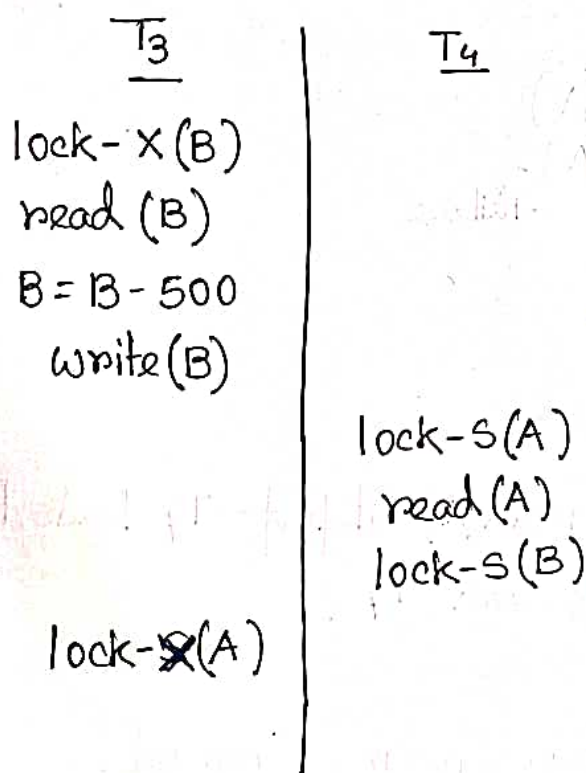 T3
T4
lock-X(B)
read (B)
B = B - 500
write(B)
lock-S(A)
read(A)
lock-S(B)
lock-X(A)